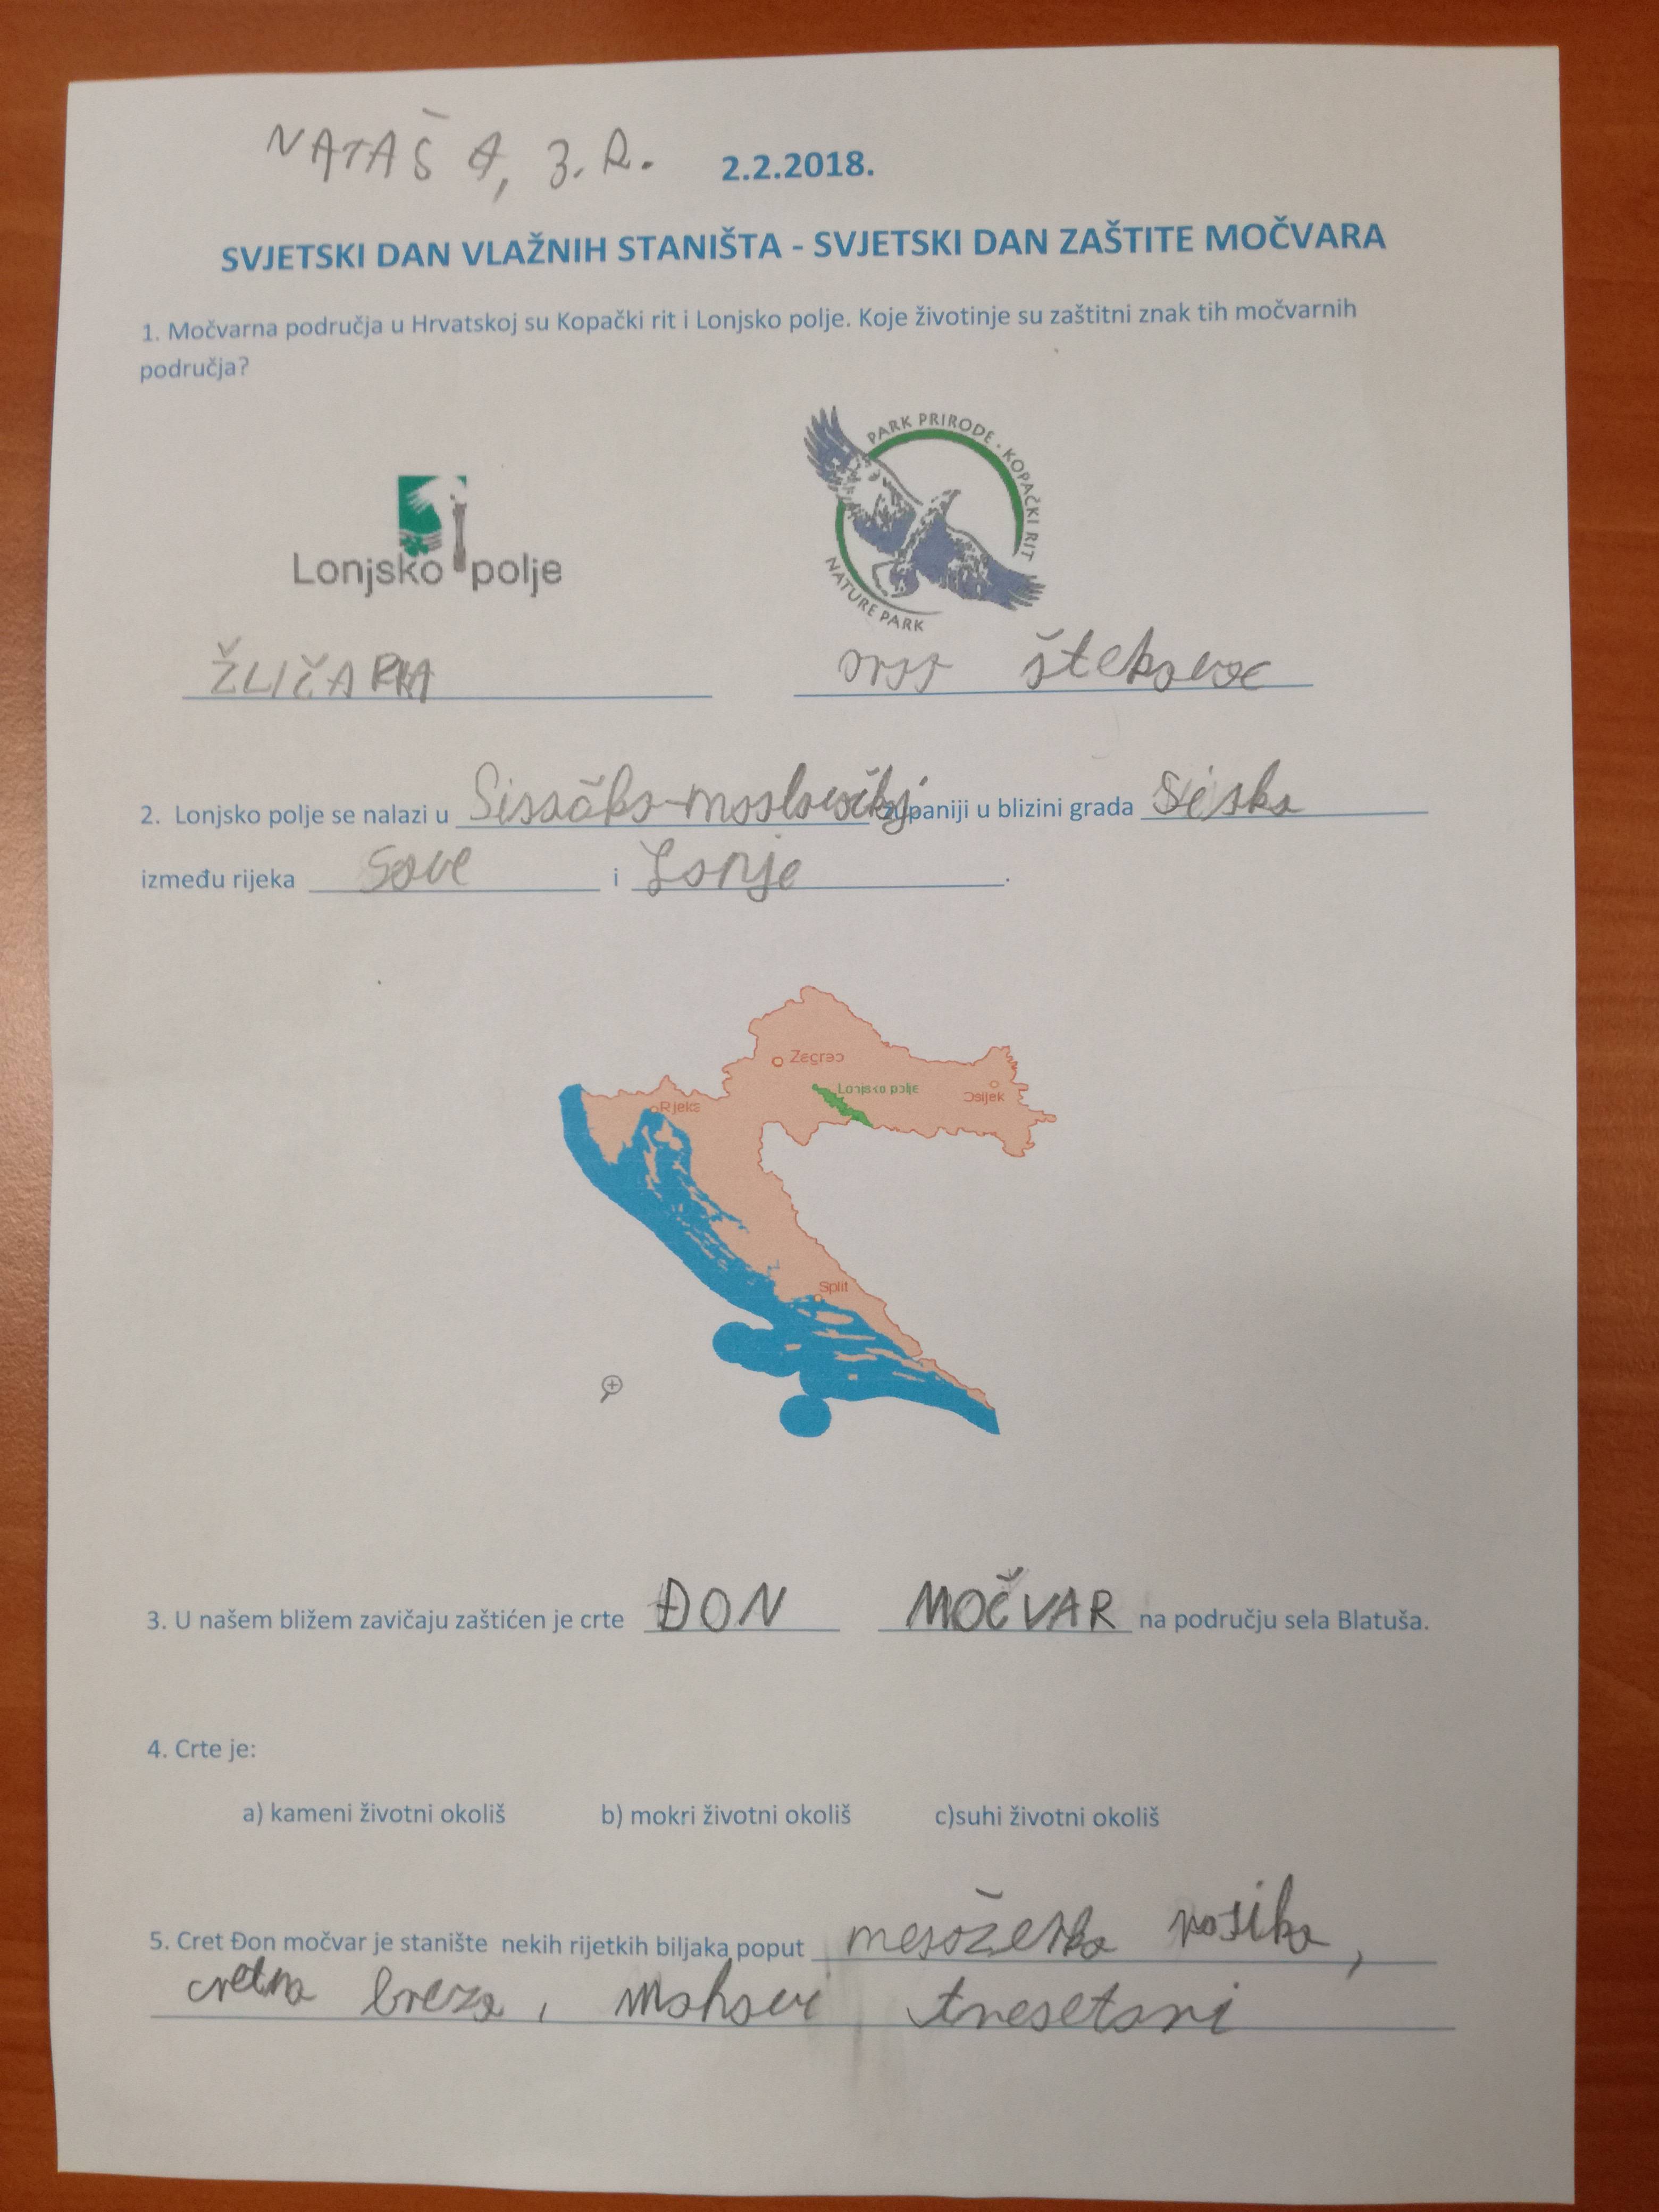 NATAŠA, 3. R. 2.2.2018.
SVJETSKI DAN VLAŽNIH STANIŠTA - SVJETSKI DAN ZAŠTITE MOČVARA
1. Močvarna područja u Hrvatskoj su Kopački rit i Lonjsko polje. Koje životinje su zaštitni znak tih močvarnih
područja?
PARK PRIRODE - KOPAČKI RIT
NATURE PARK
Lonjsko polje
ŽLIČARKA orao štekavac
2. Lonjsko polje se nalazi u Sisačko-moslavačkoj županiji u blizini grada Siska
između rijeka Save i Lonje.
Zagreb
Lonjsko polje
Osijek
Rijeka
Split
3. U našem bližem zavičaju zaštićen je crte ĐON MOČVAR na području sela Blatuša.
4. Crte je:
a) kameni životni okoliš b) mokri životni okoliš c)suhi životni okoliš
5. Cret Đon močvar je stanište nekih rijetkih biljaka poput mesožerka rosika,
cretna breza, mahovi tresetari